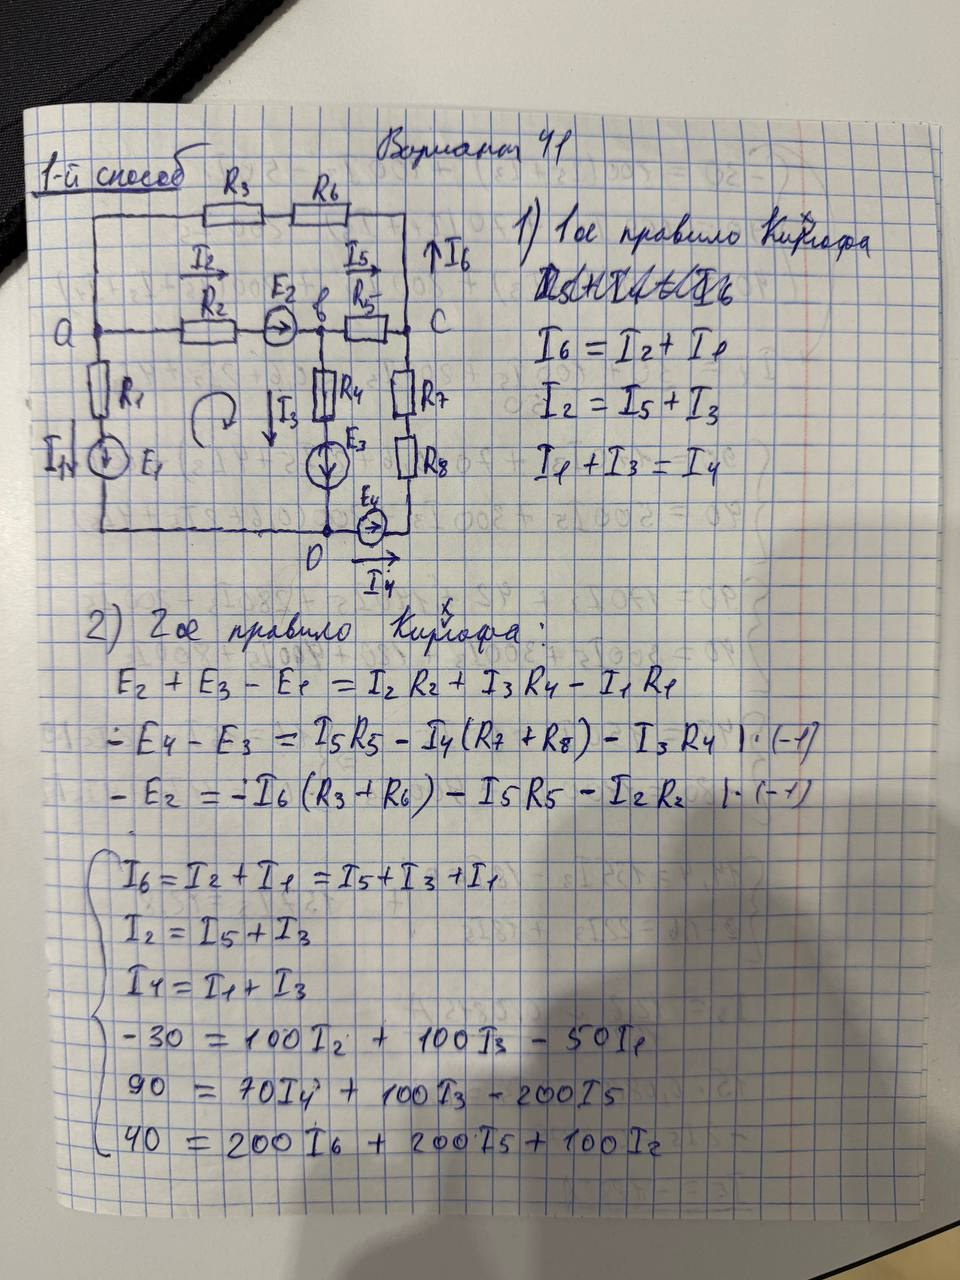 Вариант 41
1-й способ
R3 R6
I2 I5 I6
E2 R5
a R2 b c
R1 I3 R4 R7
I1 E1 E3 R8
E4
D
I4
1) 1ое правило Кирхгофа
I6 = I2 + I1
I2 = I5 + I3
I1 + I3 = I4
2) 2ое правило Кирхгофа:
E2 + E3 - E1 = I2 R2 + I3 R4 - I1 R1
- E4 - E3 = I5 R5 - I4 (R7 + R8) - I3 R4 | · (-1)
- E2 = - I6 (R3 + R6) - I5 R5 - I2 R2 | · (-1)
I6 = I2 + I1 = I5 + I3 + I1
I2 = I5 + I3
I4 = I1 + I3
-30 = 100 I2 + 100 I3 - 50 I1
90 = 70 I4 + 100 I3 - 200 I5
40 = 200 I6 + 200 I5 + 100 I2